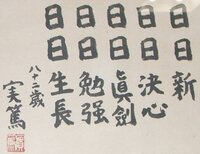 日日新
日日決心
日日眞剣
日日勉强
日日生長
八十二歳
実篤